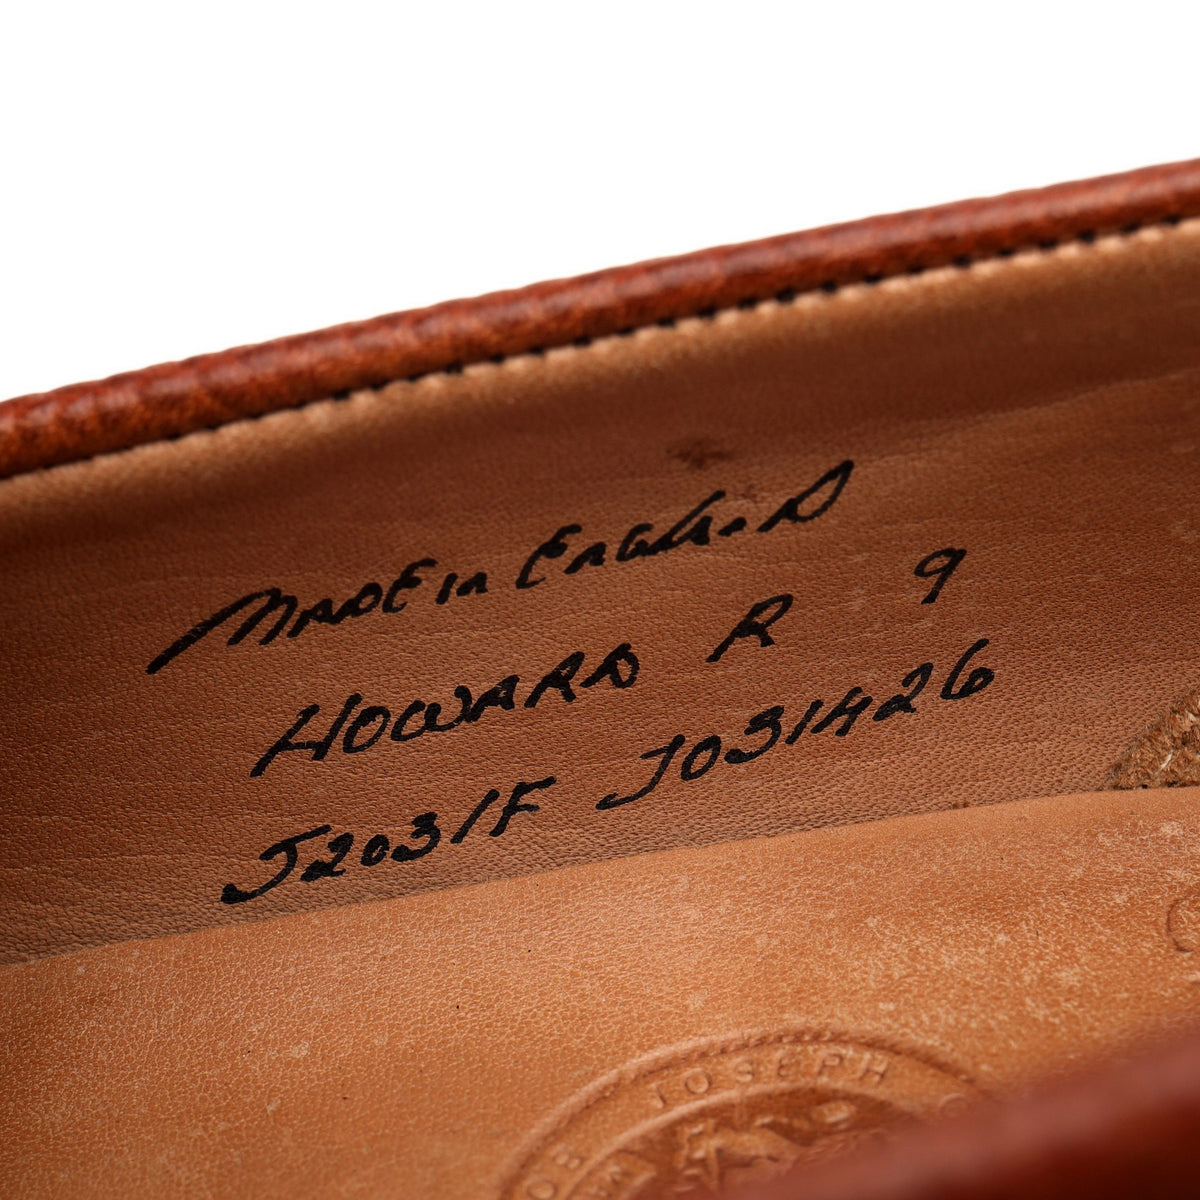 MADE in England
HOWARD R 9
J2031F J031426
JOSEPH